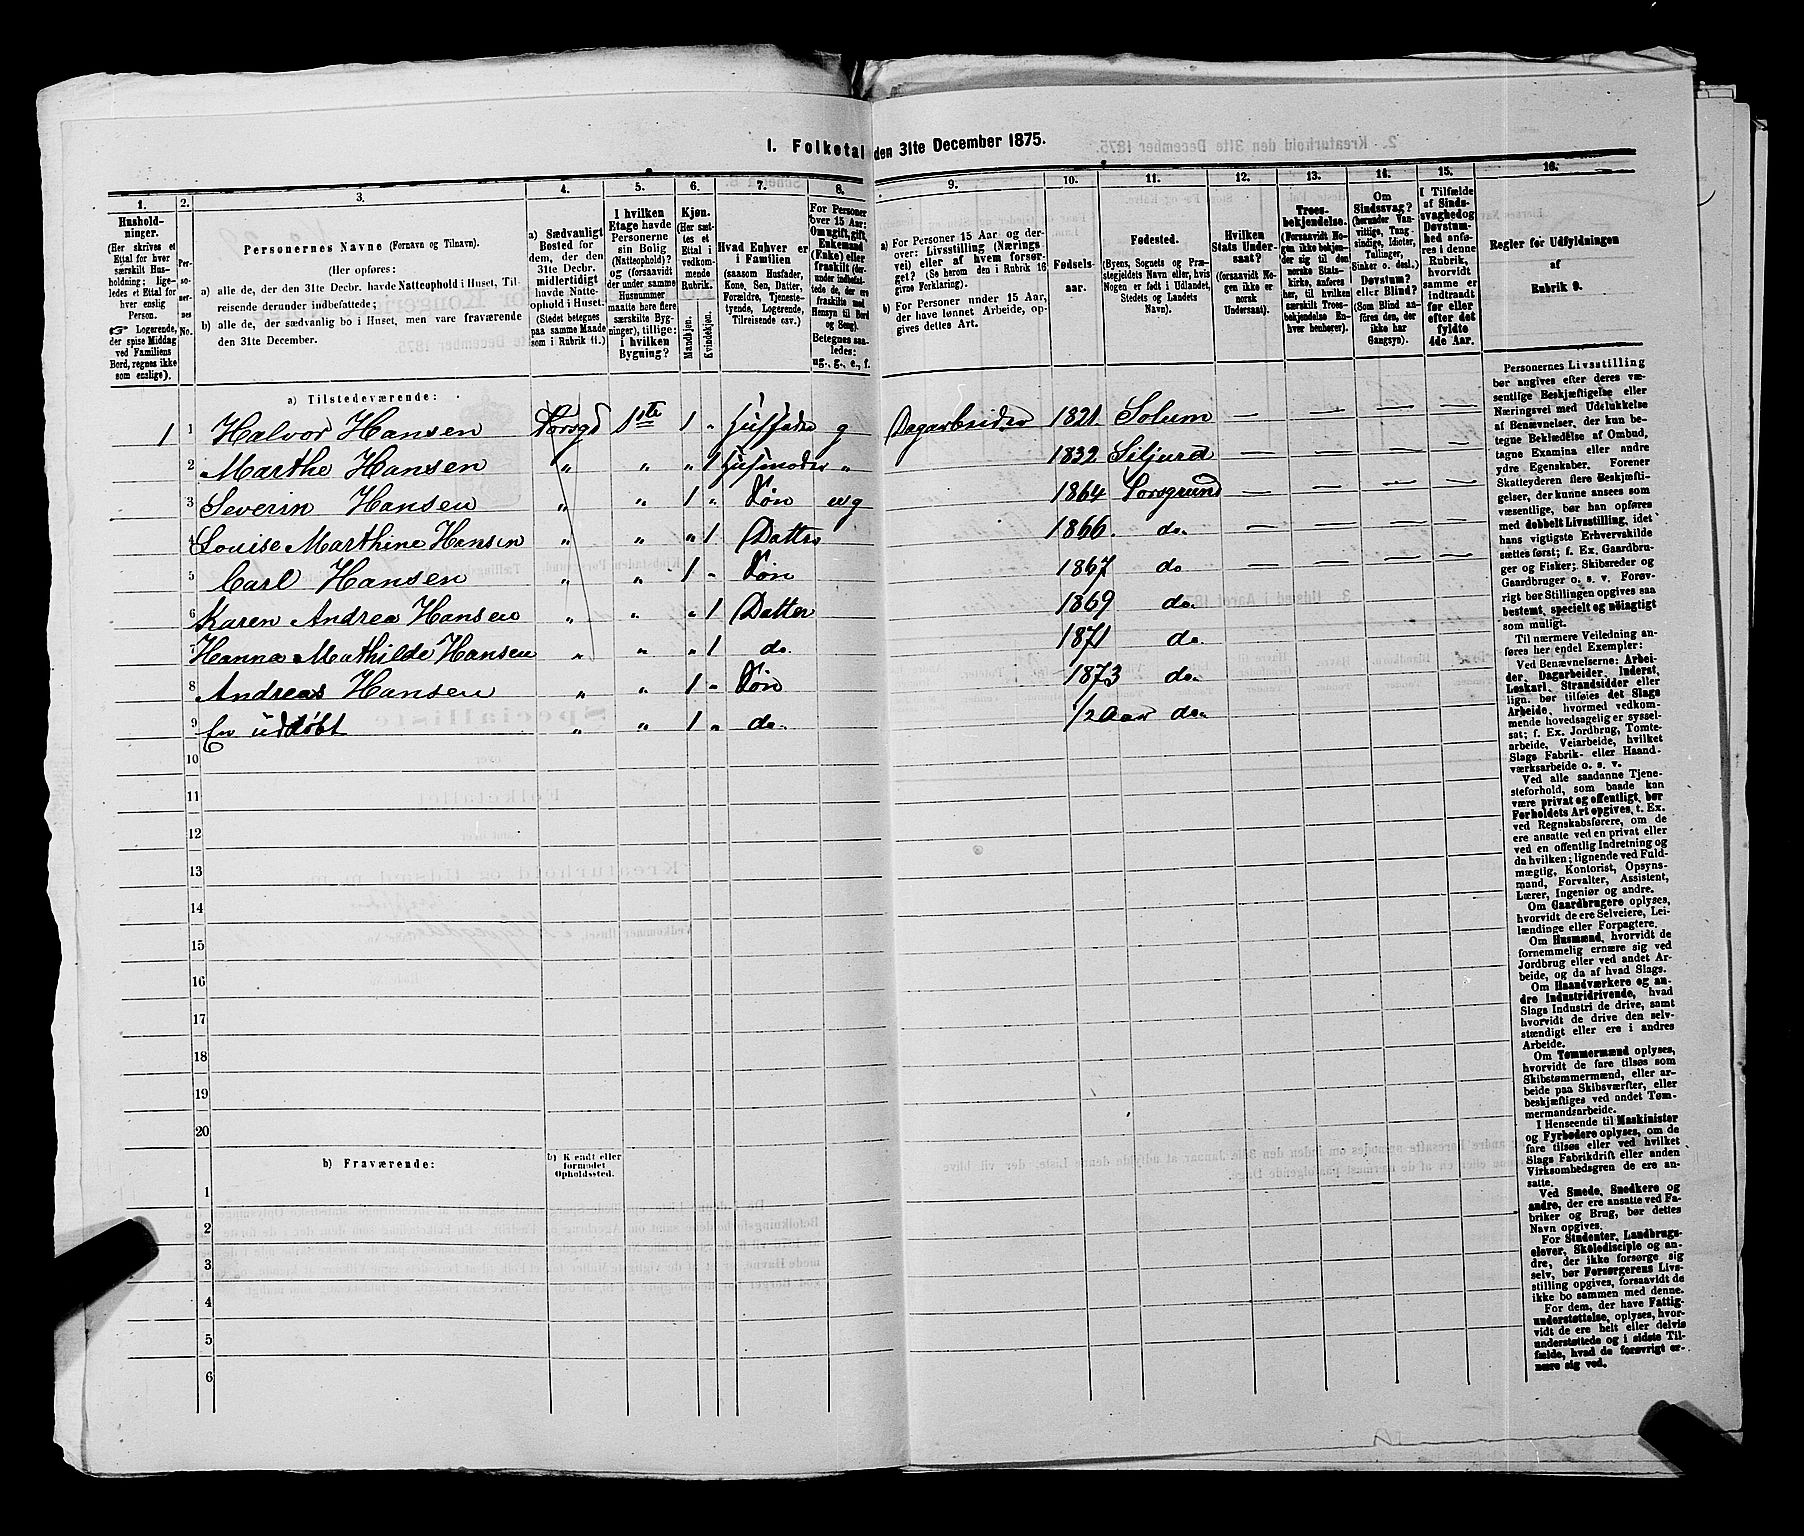 1. Folketal den 31te December 1875.
1. 2. 3. 4. 5. 6. 7. 8. 9. 10. 11. 12. 13. 14. 15. 16.
Husholdninger.
(Her skrives et Ettal for hver særskilt Husholdning; ligeledes et Ettal for hver enslig Person.
☞ Logerende, der spise Middag ved Familiens Bord, regnes ikke som enslige).
Personernes No.
Personernes Navne (Fornavn og Tilnavn).
(Her opføres:
a) alle de, der den 31te Decbr. havde Natteophold i Huset, Tilreisende derunder indbefattede;
b) alle de, der sædvanlig bo i Huset, men vare fraværende den 31te December.
a) Sædvanligt Bosted for dem, der den 31te Decbr. midlertidigt havde Natteophold i Huset.
(Stedet betegnes paa samme Maade som i Rubrik 11.)
I hvilken Etage havde Personerne sin Bolig (Natteophold)? og (forsaavidt der under samme Husnummer maatte høre flere særskilte Bygninger), tillige: i hvilken Bygning?
Kjøn.
(Her sættes et Ettal i vedkommende Rubrik.
Mandkjøn.
Kvindekjøn.
Hvad Enhver er i Familien
(saasom Husfader, Kone, Søn, Datter, Forældre, Tjenestetyende, Logerende, Tilreisende osv.)
For Personer over 15 Aar: Om ugift, gift, Enkemand (Enke) eller fraskilt (derunder indbefattede de, der ere fraskilte med Hensyn til Bord og Seng).
Betegnes saaledes:
ug., g., e., f.
a) For Personer 15 Aar og derover: Livsstilling (Næringsvei) eller af hvem forsørget? (Se herom den i Rubrik 16 givne Forklaring).
b) For Personer under 15 Aar, der have lønnet Arbeide, opgives dettes Art.
Fødselsaar.
Fødested.
(Byens, Sognets og Præstegjeldets Navn eller, hvis Nogen er født i Udlandet, Stedets og Landets Navn).
Hvilken Stats Undersaat?
(forsaavidt Nogen ikke er norsk Undersaat).
Troesbekjendelse.
(Forsaavidt Nogen ikke bekjender sig til den norske Statskirke, anføres her, til hvilken særskilt Troesbekjendelse Enhver henhører).
Om Sindssvag? (herunder Vanvittige, Tungsindige, Idioter, Tullinger, Sinker o. desl.)
Døvstum? eller Blind?
(Som Blind anføres den, der ikke har Gangsyn).
I Tilfælde af Sindssvaghed og Døvstumhed anføres i denne Rubrik, hvorvidt samme er indtraadt før eller efter det fyldte 4de Aar.
Regler for Udfyldningen
af
Rubrik 9.
a) Tilstedeværende:
1 1 Halvor Hansen Porsgd 1ste 1 " Husfader g Dagarbeider 1821. Solum — — — —
2 Marthe Hansen " " " 1 Husmoder " 1832 Siljord — — — —
3 Severin Hansen " " 1 " Søn ug 1864 Porsgrund — — — —
4 Louise Marthine Hansen " " " 1 Datter 1866. do. — — — —
5 Carl Hansen " " 1 " Søn 1867 do — — — —
6 Karen Andrea Hansen " " " 1 Datter 1869 do.
7 Hanna Mathilde Hansen " " " 1 do. 1871 do.
8 Andreas Hansen " " 1 " Søn 1873 do.
9 En uddøbt " " 1 " do. 1/2 Aar do.
10
11
12
13
14
15
16
17
18
19
20
b) Fraværende:
b) Kjendt eller formodet Opholdssted.
1
2
3
4
5
6
Personernes Livsstilling
bør angives efter deres væ-
sentlige Beskjæftigelse eller
Næringsvei med Udelukkelse
af Benævnelser, der kun be-
tegne Beklædelse af Ombud,
tagne Examina eller andre
ydre Egenskaber. Forener
Skatteyderen flere Beskjæfti-
gelser, der kunne ansees som
væsentlige, bør han opføres
med dobbelt Livsstilling, idet
hans vigtigste Erhvervskilde
sættes først; f. Ex. Gaardbru-
ger og Fisker; Skibsreder og
Gaardbruger o. s. v. Forøv-
rigt bør Stillingen opgives saa
bestemt, specielt og nøiagtigt
som muligt.
Til nærmere Veiledning an-
føres her endel Exempler:
Ved Benævnelserne: Arbei-
der, Dagarbeider, Inderst,
Løskarl, Strandsidder eller
lign. bør tilføies det Slags
Arbeide, hvormed vedkom-
mende hovedsagelig er syssel-
sat; f. Ex. Jordbrug, Tomte-
arbeide, Veiarbeide, hvilket
Slags Fabrik- eller Haand-
værksarbeide o. s. v.
Ved alle saadanne Tjene-
steforhold, som baade kan
være privat og offentligt, bør
Forholdets Art opgives, t. Ex.
ved Regnskabsførere, om de
ere ansatte ved en privat eller
ved en offentlig Indretning og
da hvilken; lignende ved Fuld-
mægtig, Kontorist, Opsyns-
mand, Forvalter, Assistent,
Lærer, Ingeniør og andre.
Om Gaardbrugere oplyses,
hvorvidt de ere Selveiere, Lei-
lændinge eller Forpagtere.
Om Husmænd, hvorvidt de
fornemmelig ernære sig ved
Jordbrug eller ved andet Ar-
beide, og da af hvad Slags.
Om Haandværkere og an-
dre Industridrivende, hvad
Slags Industri de drive, samt
hvorvidt de drive den selv-
stændigt eller ere i andres
Arbeide.
Om Tømmermænd oplyses,
hvorvidt de fare tilsøs som
Skibstømmermænd, eller ar-
beide paa Skibsværfter, eller
beskjæftiges ved andet Tøm-
mermandsarbeide.
I Henseende til Maskinister
og Fyrbødere oplyses, om de
fare tilsøs eller ved hvilket
Slags Fabrikdrift eller anden
Virksomhedsgren de ere an-
satte.
Ved Smede, Snedkere og
andre, der ere ansatte ved Fa-
briker og Brug, bør dettes
Navn opgives.
For Studenter, Landbrugs-
elever, Skoledisciple og an-
dre, der ikke forsørge sig
selv, bør Forsørgerens Livs-
stilling opgives, forsaavidt de
ikke bo sammen med denne.
For dem, der have Fattig-
understøttelse, oplyses, hvor-
vidt de ere helt eller delvis
understøttede og i sidste Til-
fælde, hvad de forøvrigt er-
nære sig ved.